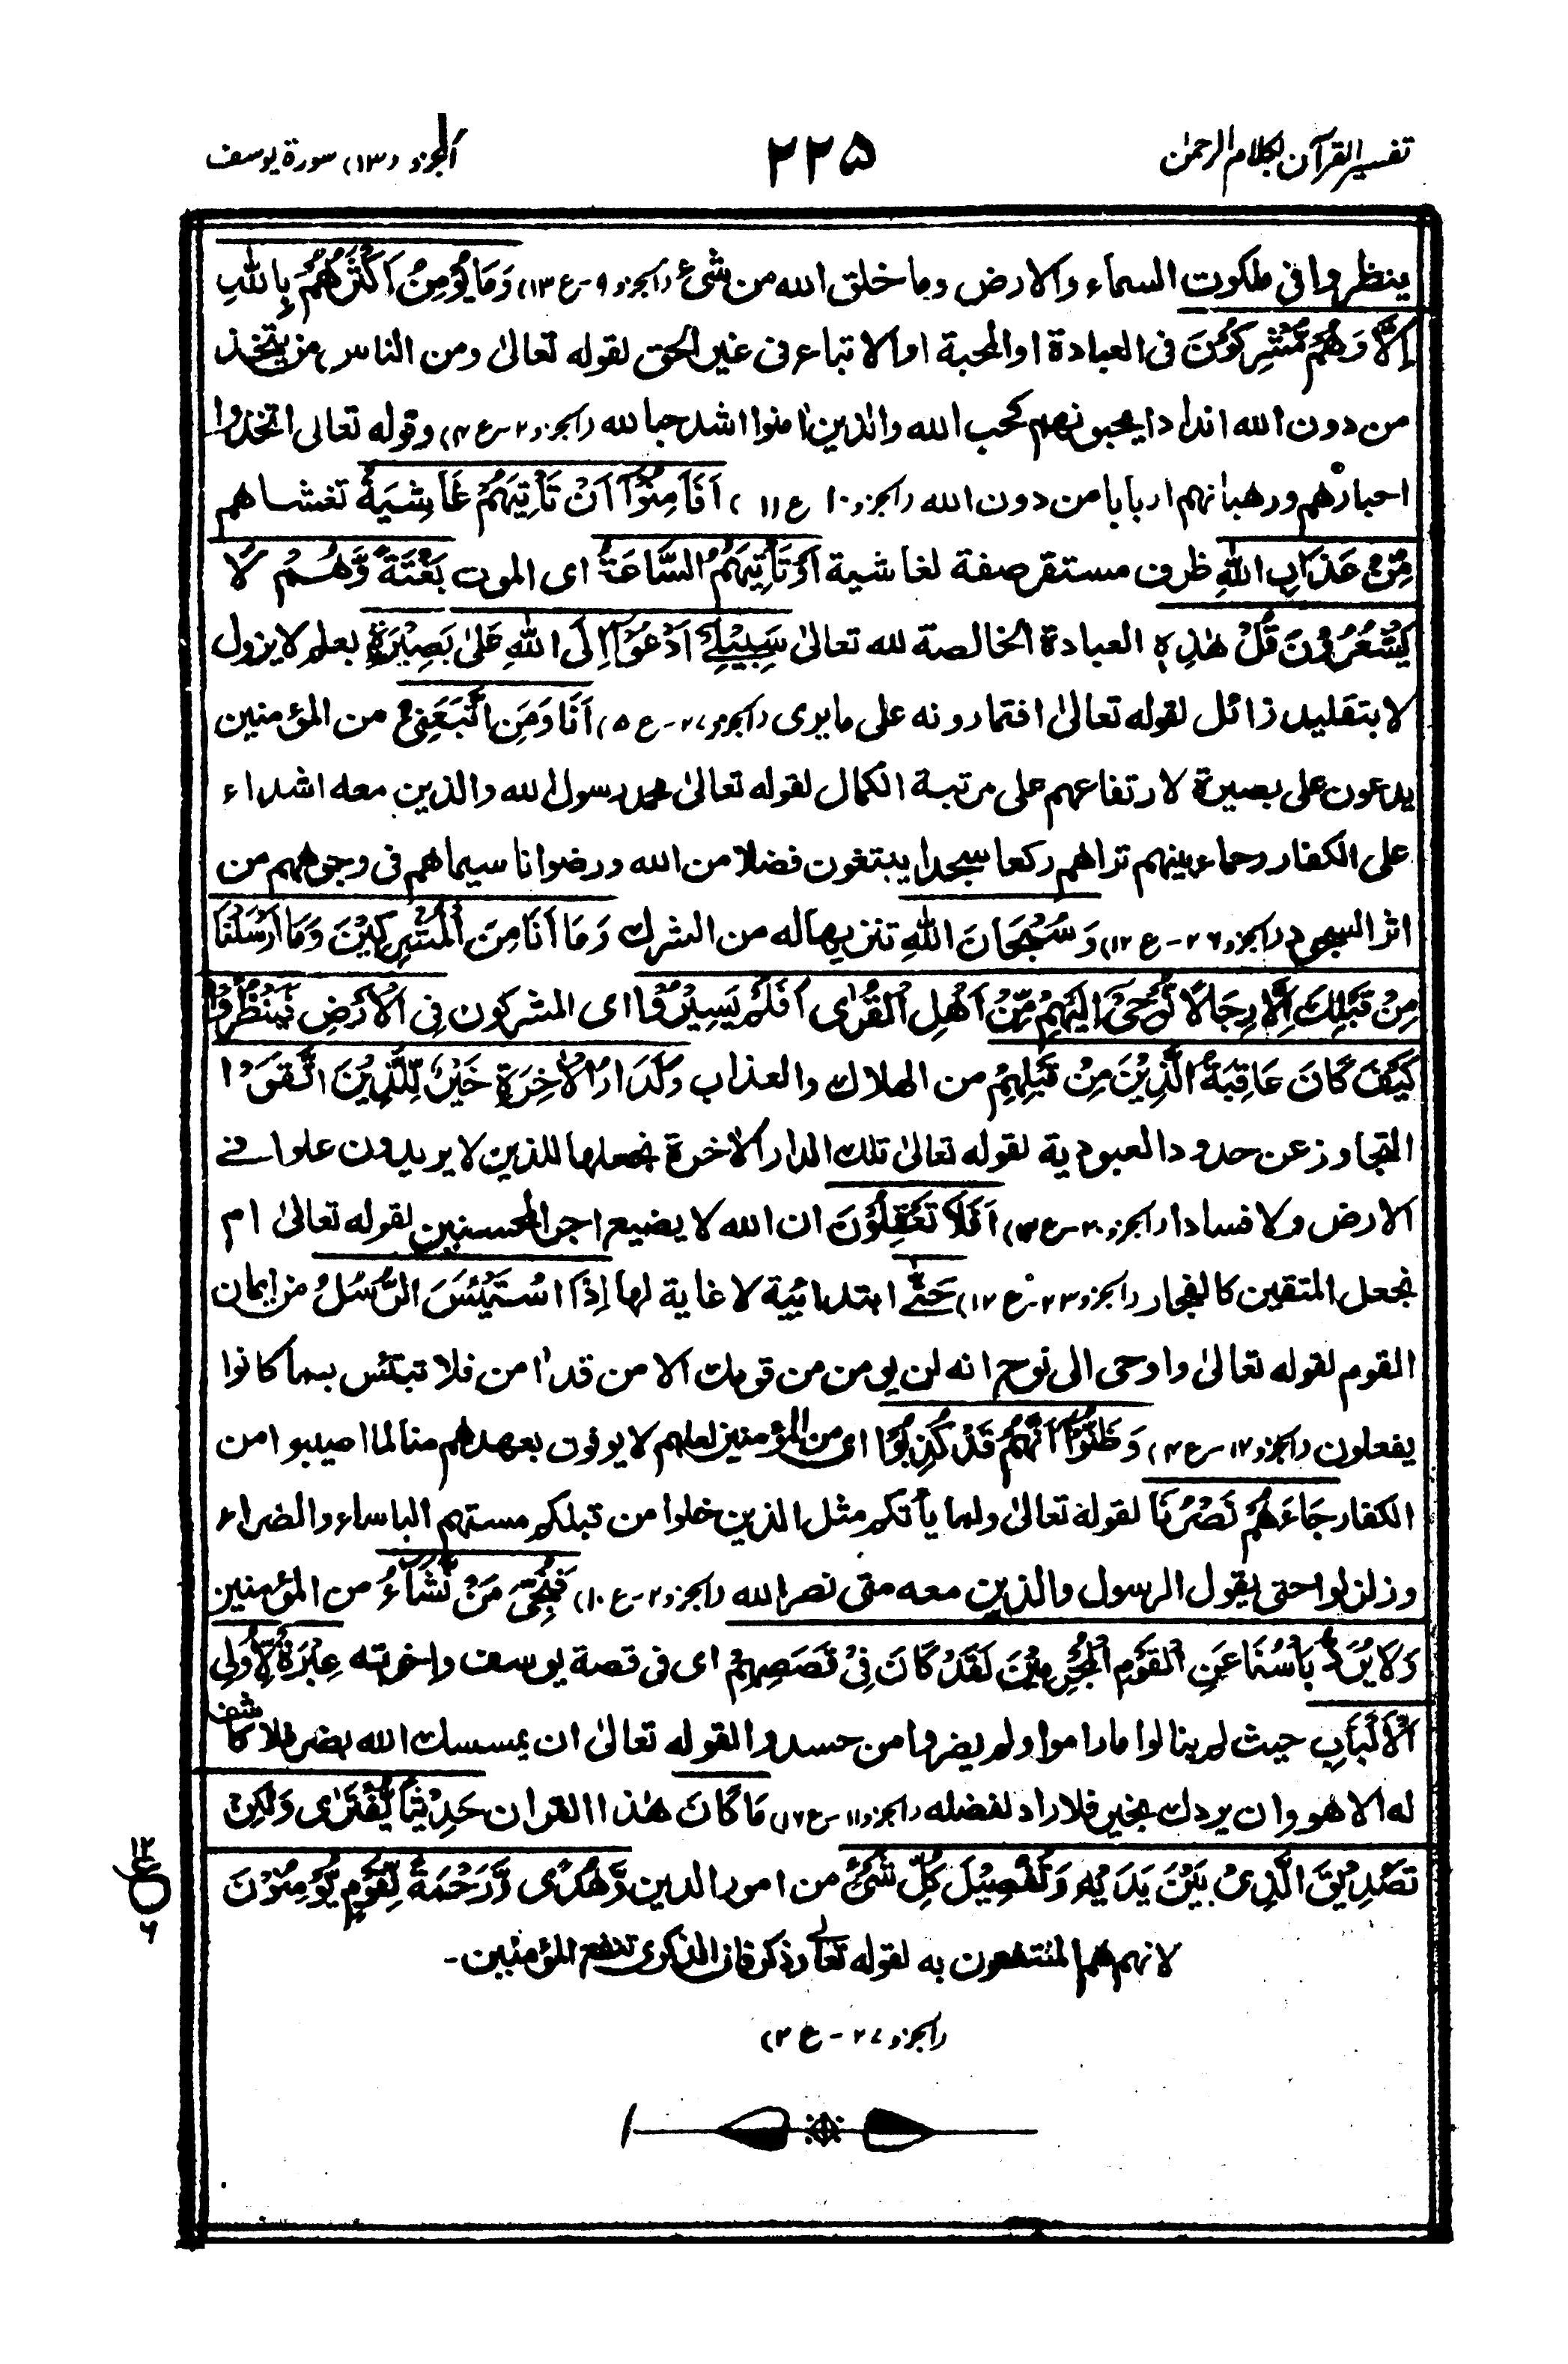 تفسیر القرآن بکلام الرحمٰن
۲۲۵
الجزء (۱۳) سورۃ یوسف
ینظروا فی ملکوت السماء والارض وما خلق الله من شیٔ (الجزء ۹-ع ۱۳) وَمَا یُؤْمِنُ اَکْثَرُهُمْ بِاللّٰهِ
اِلَّا وَهُمْ مُّشْرِکُوْنَ فی العبادة او المحبة او الاتباع فی غیر الحق لقوله تعالیٰ ومن الناس من یتخذ
من دون الله اندادا یحبونهم کحب الله والذین اٰمنوا اشد حبا لله (الجزء ۲-ع ۴) وقوله تعالی اتخذوا
احبارهم ورهبانهم اربابا من دون الله (الجزء ۱۰ ع ۱۱) اَفَاَمِنُوْۤا اَنْ تَاْتِیَهُمْ غَاشِیَةٌ تغشاهم
مِّنْ عَذَابِ اللّٰهِ ظرف مستقر صفة لغاشیة اَوْ تَاْتِیَهُمُ السَّاعَةُ ای الموت بَغْتَةً وَّهُمْ لَا
یَشْعُرُوْنَ قُلْ هٰذِهٖ العبادة الخالصة لله تعالیٰ سَبِیْلِیْ اَدْعُوْۤا اِلَی اللّٰهِ عَلٰی بَصِیْرَةٍ بعلم لا یزول
لا بتقلید زائل لقوله تعالیٰ افتمارونه علی ما یری (الجزء ۲۷-ع ۵) اَنَا وَمَنِ اتَّبَعَنِیْ من المؤمنین
یدعون علی بصیرة لارتفاعهم علی مرتبة الکمال لقوله تعالیٰ محمد رسول الله والذین معه اشداء
علی الکفار رحماء بینهم تراهم رکعا سجدا یبتغون فضلا من الله ورضوانا سیماهم فی وجوههم من
اثر السجود (الجزء ۲۶-ع ۱۲) وَسُبْحَانَ اللّٰهِ تنزیها له من الشرك وَمَا اَنَا مِنَ الْمُشْرِکِیْنَ وَمَا اَرْسَلْنَا
مِنْ قَبْلِكَ اِلَّا رِجَالًا نُّوْحِیْۤ اِلَیْهِمْ مِّنْ اَهْلِ الْقُرٰی اَفَلَمْ یَسِیْرُوْا ای المشرکون فِی الْاَرْضِ فَیَنْظُرُوْا
کَیْفَ کَانَ عَاقِبَةُ الَّذِیْنَ مِنْ قَبْلِهِمْ من الهلاك والعذاب وَلَدَارُ الْاٰخِرَةِ خَیْرٌ لِّلَّذِیْنَ اتَّقَوْا
التجاوز عن حدود العبودیة لقوله تعالیٰ تلك الدار الاٰخرة نجعلها للذین لا یریدون علوا فی
الارض ولا فسادا (الجزء ۲۰-ع) اَفَلَا تَعْقِلُوْنَ ان الله لا یضیع اجر المحسنین لقوله تعالیٰ ام
نجعل المتقین کالفجار (الجزء ۲۳-ع ۱۲) حَتّٰی ابتدائیة لا غایة لها اِذَا اسْتَیْئَسَ الرُّسُلُ من ایمان
القوم لقوله تعالیٰ واوحی الی نوح انه لن یومن من قومك الا من قد اٰمن فلا تبتئس بما کانوا
یفعلون (الجزء ۱۲-ع ۴) وَظَنُّوْۤا اَنَّهُمْ قَدْ کُذِبُوْا ای من المؤمنین لعلهم لا یوفون بعهدهم منا لما اصیبوا من
الکفار جَاءَهُمْ نَصْرُنَا لقوله تعالیٰ ولما یأتکم مثل الذین خلوا من قبلکم مستهم الباساء والضراء
وزلزلوا حتی یقول الرسول والذین معه متی نصر الله (الجزء ۲-ع ۱۰) فَنُجِّیَ مَنْ نَّشَآءُ من المؤمنین
وَلَا یُرَدُّ بَاْسُنَا عَنِ الْقَوْمِ الْمُجْرِمِیْنَ لَقَدْ کَانَ فِیْ قَصَصِهِمْ ای فی قصة یوسف واخوته عِبْرَةٌ لِّاُولِی
الْاَلْبَابِ حیث لم ینالوا ما راموا ولم یضروا من حسدوا لقوله تعالیٰ ان یمسسك الله بضر فلا کاشف
له الا هو وان یردك بخیر فلا راد لفضله (الجزء ۱۱-ع ۱۶) مَا کَانَ هٰذا القران حَدِیْثًا یُّفْتَرٰی وَلٰکِنْ
تَصْدِیْقَ الَّذِیْ بَیْنَ یَدَیْهِ وَتَفْصِیْلَ کُلِّ شَیْءٍ من امور الدین وَّهُدًی وَّرَحْمَةً لِّقَوْمٍ یُّؤْمِنُوْنَ
۱۲
ع
۶
لانهم هم المنتفعون به لقوله تعالی وذکر فان الذکری تنفع المؤمنین۔
(الجزء ۲۷-ع ۲)